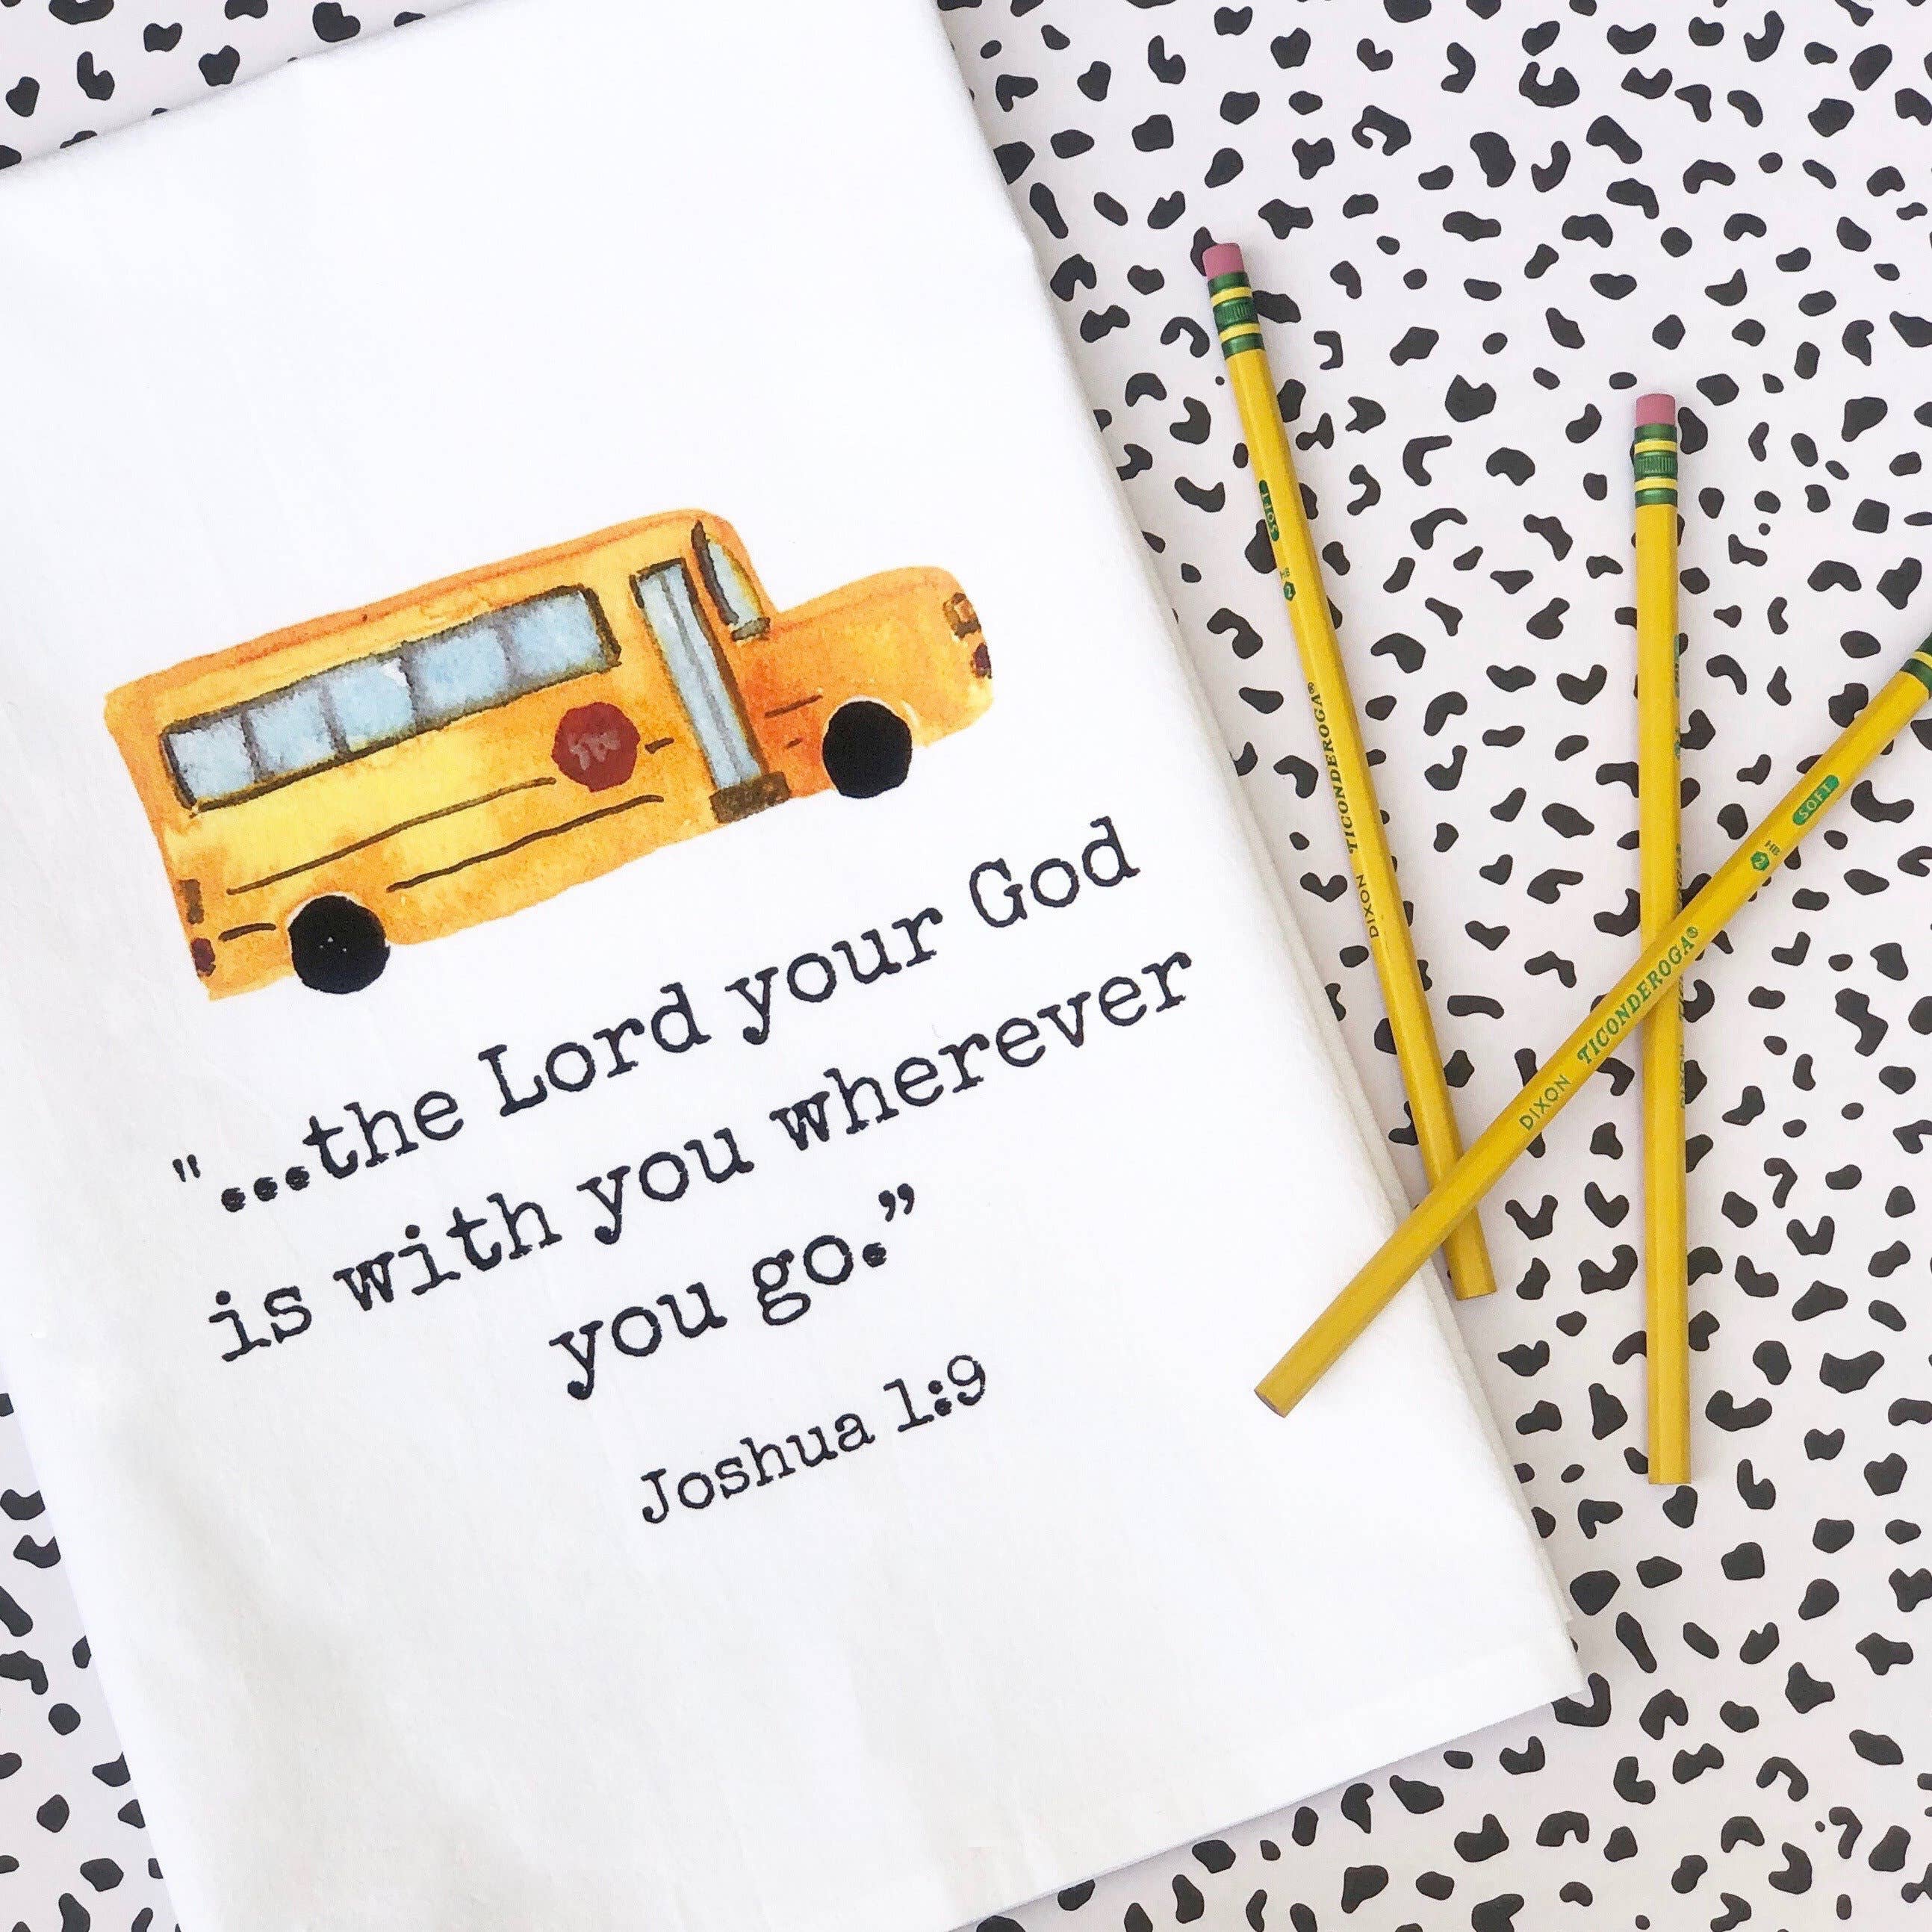 "...the Lord your God
is with you wherever
you go.”
Joshua 1:9
SOFT
HB
2
DIXON TICONDEROGA®
DIXON TICONDEROGA® HB
2
SOFT